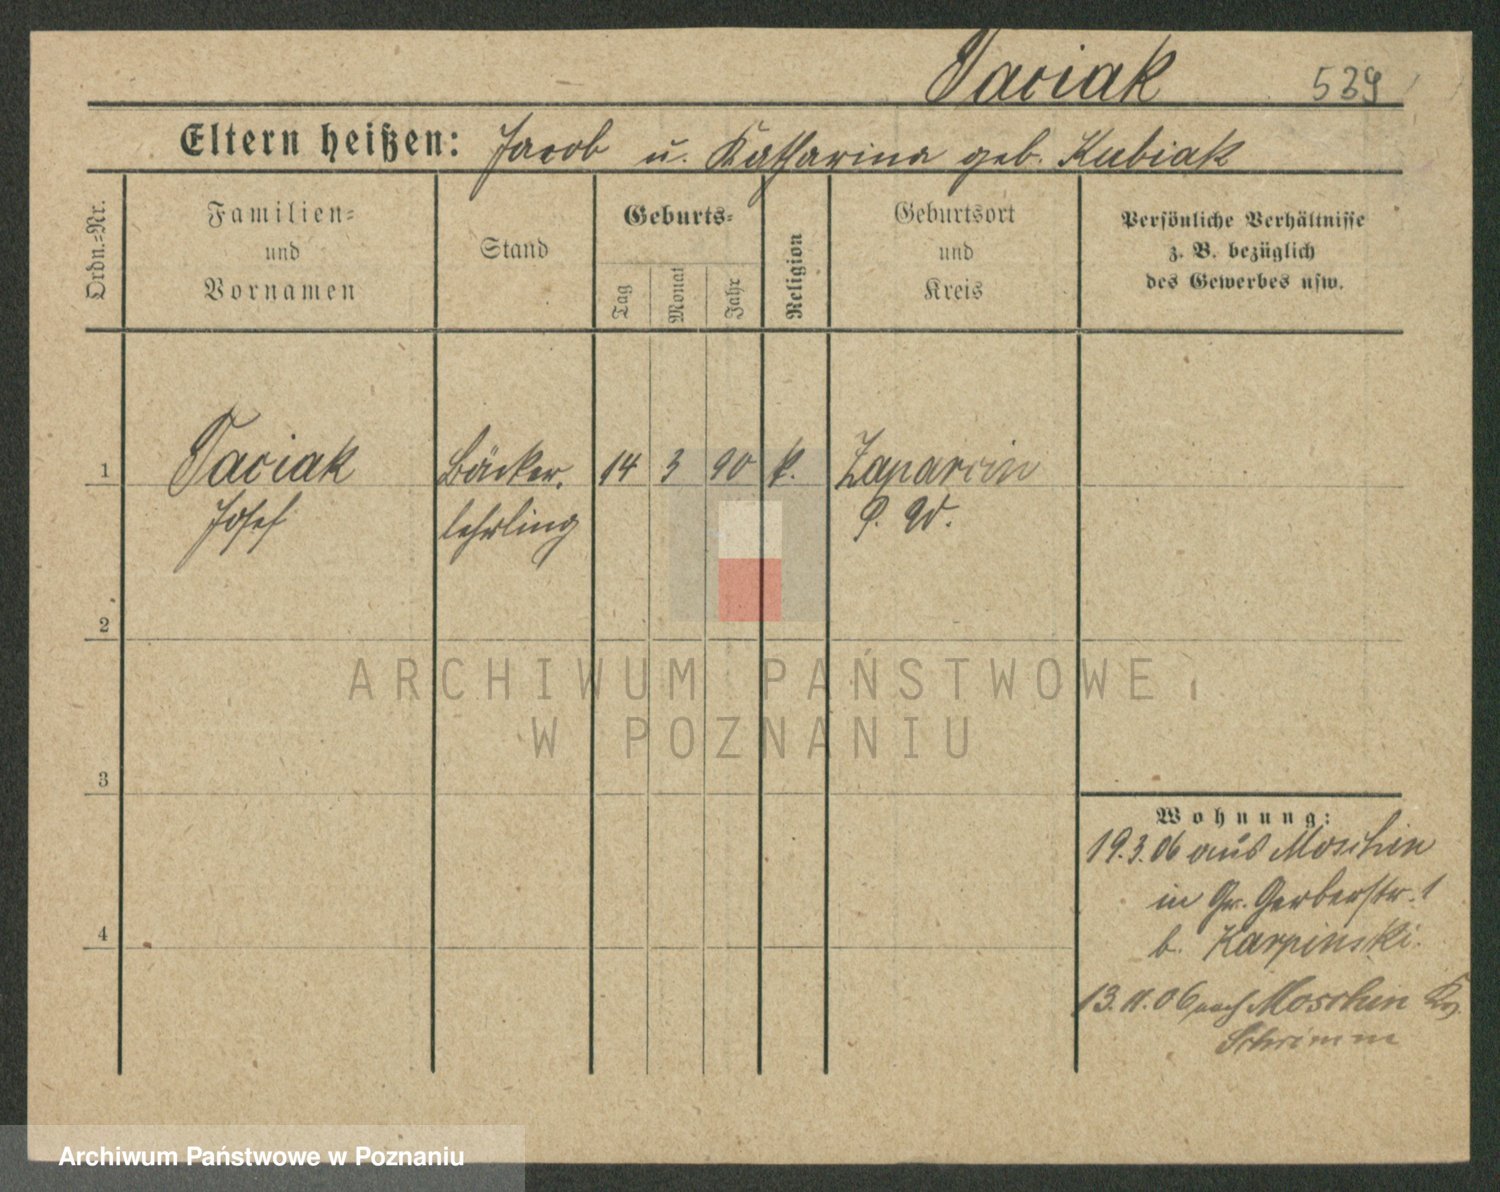 Taciak 539
Eltern heißen: Jacob u. Katharina geb. Kubiak
Ordn.=Nr.
Familien=
und
Vornamen
Stand
Geburts=
Tag
Monat
Jahr
Religion
Geburtsort
und
Kreis
Persönliche Verhältnisse
z. B. bezüglich
des Gewerbes usw.
1 Taciak Bäcker. 14 3 90 k. Zaparcin
Josef lehrling P. W.
2
3
4
Wohnung:
19.3.06 aus Moschin
in Gr. Gerberstr. 1
b. Karpinski.
13.11.06 nach Moschin Kr.
Schrimm
ARCHIWUM PAŃSTWOWE
W POZNANIU
Archiwum Państwowe w Poznaniu